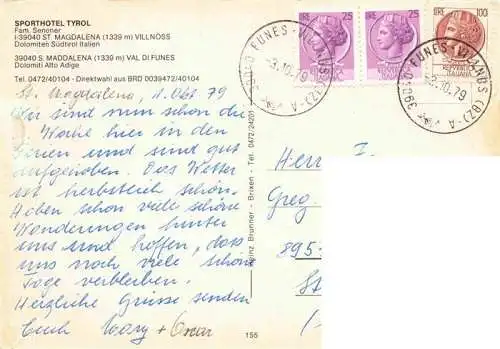 SPORTHOTEL TYROL
Fam. Senoner
I-39040 ST. MAGDALENA (1339 m) VILLNÖSS
Dolomiten Südtirol Italien
39040 S. MADDALENA (1339 m) VAL DI FUNES
Dolomiti Alto Adige
Tel. 0472/40104 - Direktwahl aus BRD 0039472/40104
St. Magdalena, 1. Okt. 79
Wir sind nun schon die
Woche hier in den
Ferien und sind gut
aufgehoben. Das Wetter
ist herbstlich schön.
Haben schon viel schöne
Wanderungen hinter
uns und hoffen, dass
uns noch viele schöne
Tage verbleiben.
Herzliche Grüsse senden
Euch Mary + Oscar
155
Heinz Brunner - Brixen - Tel. 0472/24201
LIRE 25
LIRE 25
LIRE 100
REPUBBLICA
ITALIANA
39040 FUNES - VILLNÖSS (BZ) - A
-3.10.79
39040 FUNES - VILLNÖSS (BZ) - A
-3.10.79
Herrn
Greg
895